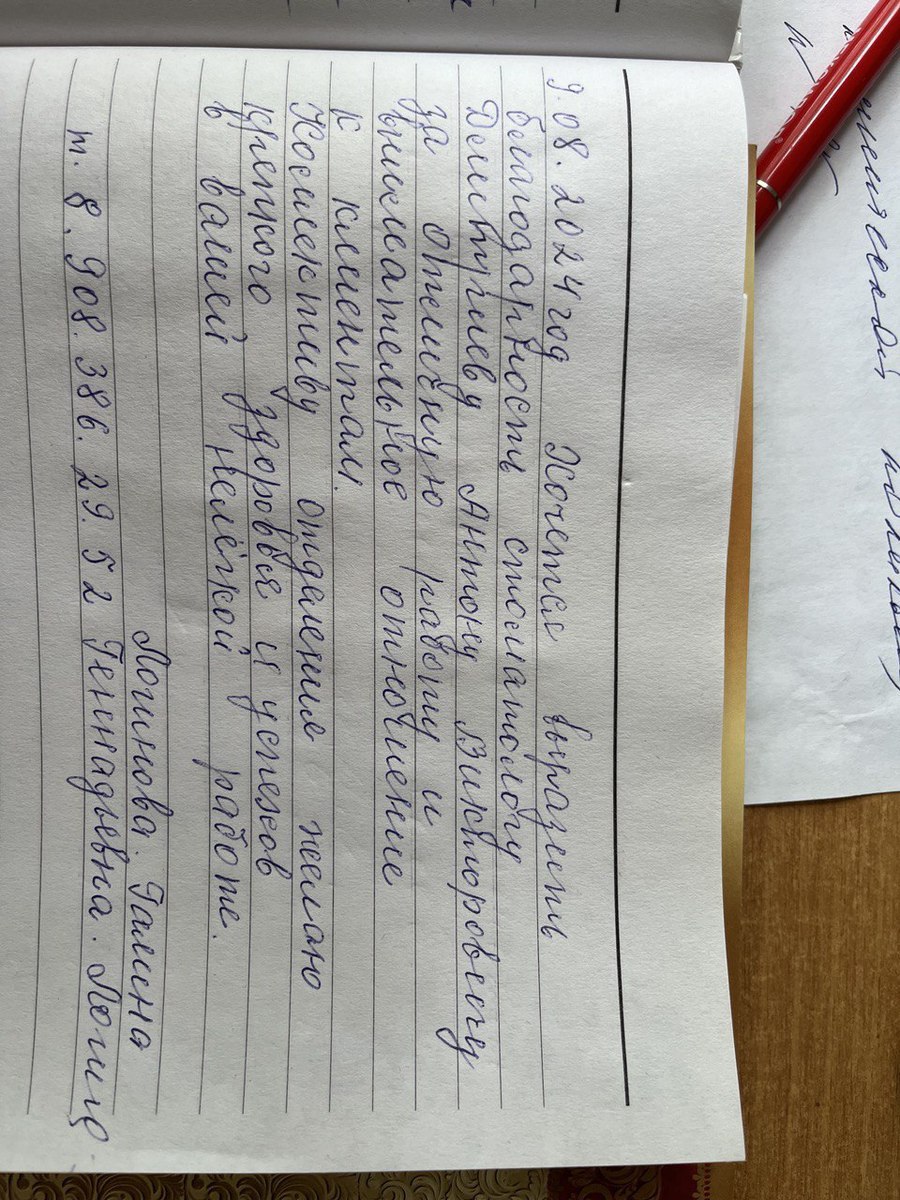 9.08.2024 год Хочется выразить
благодарность стоматологу
Демитриеву Антону Викторовичу
за отличную работу и
внимательное отношение
к клиентам.
Коллективу отделения желаю
крепкого здоровья и успехов
в вашей нелёгкой работе.
Логинова Галина
т. 8. 908. 386. 29. 52 Геннадьевна.